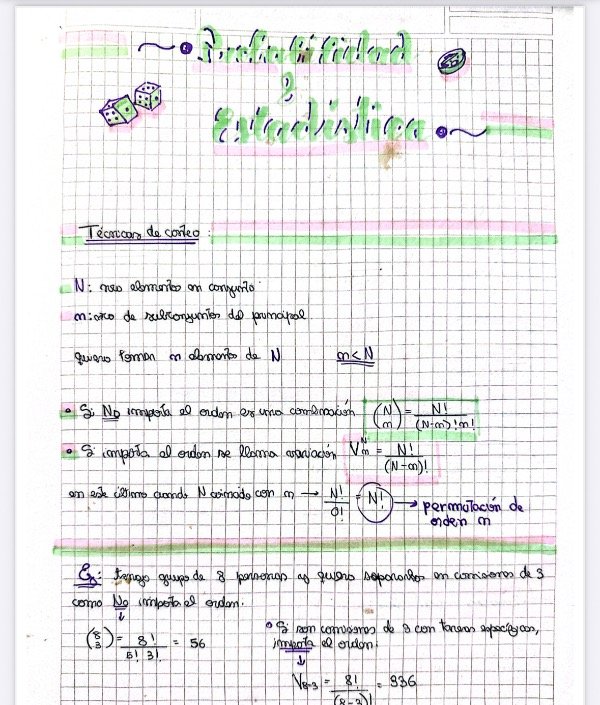 Probabilidad
y
Estadística
Técnicas de conteo:
N: nro elementos en conjunto
m: nro de subconjuntos del principal
quiero formar m elementos de N m < N
• Si No importa el orden es una combinación (N m) = N! / (N-m)! m!
• Si importa el orden se llama variación V_m^N = N! / (N-m)!
en este último cuando N coincide con m → N! / 0! = N! → permutación de
orden m
Ej: tengo grupo de 8 personas y quiero separarlos en comisiones de 3
como No importa el orden.
(8 3) = 8! / 5! 3! = 56
• Si son comisiones de 3 con tareas específicas,
importa el orden:
V8-3 = 8! / (8-3)! = 336